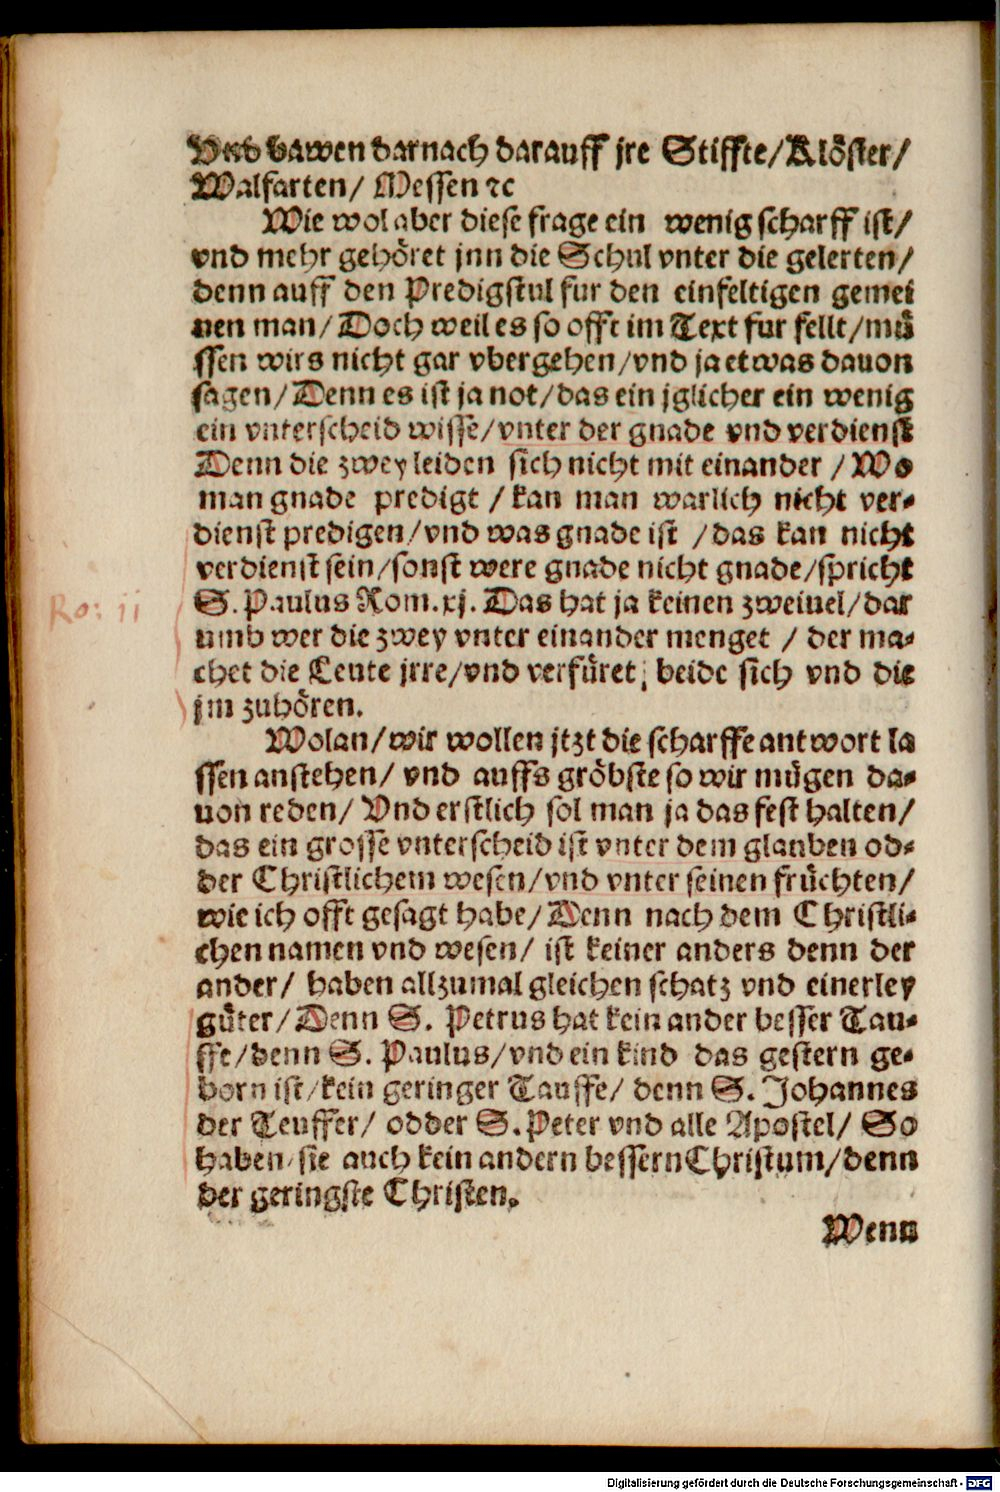 Vnd bawen darnach darauff jre Stiffte/Klöster/
Walfarten/ Messen ꝛc
Wie wol aber diese frage ein wenig scharff ist/
vnd mehr gehöret jnn die Schul vnter die gelerten/
denn auff den Predigstul fur den einfeltigen gemei
nen man/Doch weil es so offt im Text fur fellt/muͤ
ssen wirs nicht gar vbergehen/vnd ja etwas dauon
sagen/Denn es ist ja not/das ein jglicher ein wenig
ein vnterscheid wisse/vnter der gnade vnd verdienst
Denn die zwey leiden sich nicht mit einander /Wo
man gnade predigt /kan man warlich nicht ver-
dienst predigen/vnd was gnade ist /das kan nicht
verdienst sein/sonst were gnade nicht gnade/spricht
S. Paulus Rom.xj. Das hat ja keinen zweiuel/dar
umb wer die zwey vnter einander menget / der ma-
chet die Leute jrre/vnd verfuͤret, beide sich vnd die
jm zuhören.
Ro: ii
Wolan/wir wollen jtzt die scharffe antwort la
ssen anstehen/ vnd auffs gröbste so wir muͤgen da-
uon reden/ Vnd erstlich sol man ja das fest halten/
das ein grosse vnterscheid ist vnter dem glauben od-
der Christlichem wesen/vnd vnter seinen fruͤchten/
wie ich offt gesagt habe/Denn nach dem Christli-
chen namen vnd wesen/ ist keiner anders denn der
ander/ haben allzumal gleichen schatz vnd einerley
guͤter/Denn S. Petrus hat kein ander besser Tau-
ffe/denn S. Paulus/vnd ein kind das gestern ge-
born ist/kein geringer Tauffe/ denn S. Johannes
der Teuffer/ odder S. Peter vnd alle Apostel/ So
haben sie auch kein andern bessern Christum/denn
der geringste Christen.
Wenn
Digitalisierung gefördert durch die Deutsche Forschungsgemeinschaft - DFG